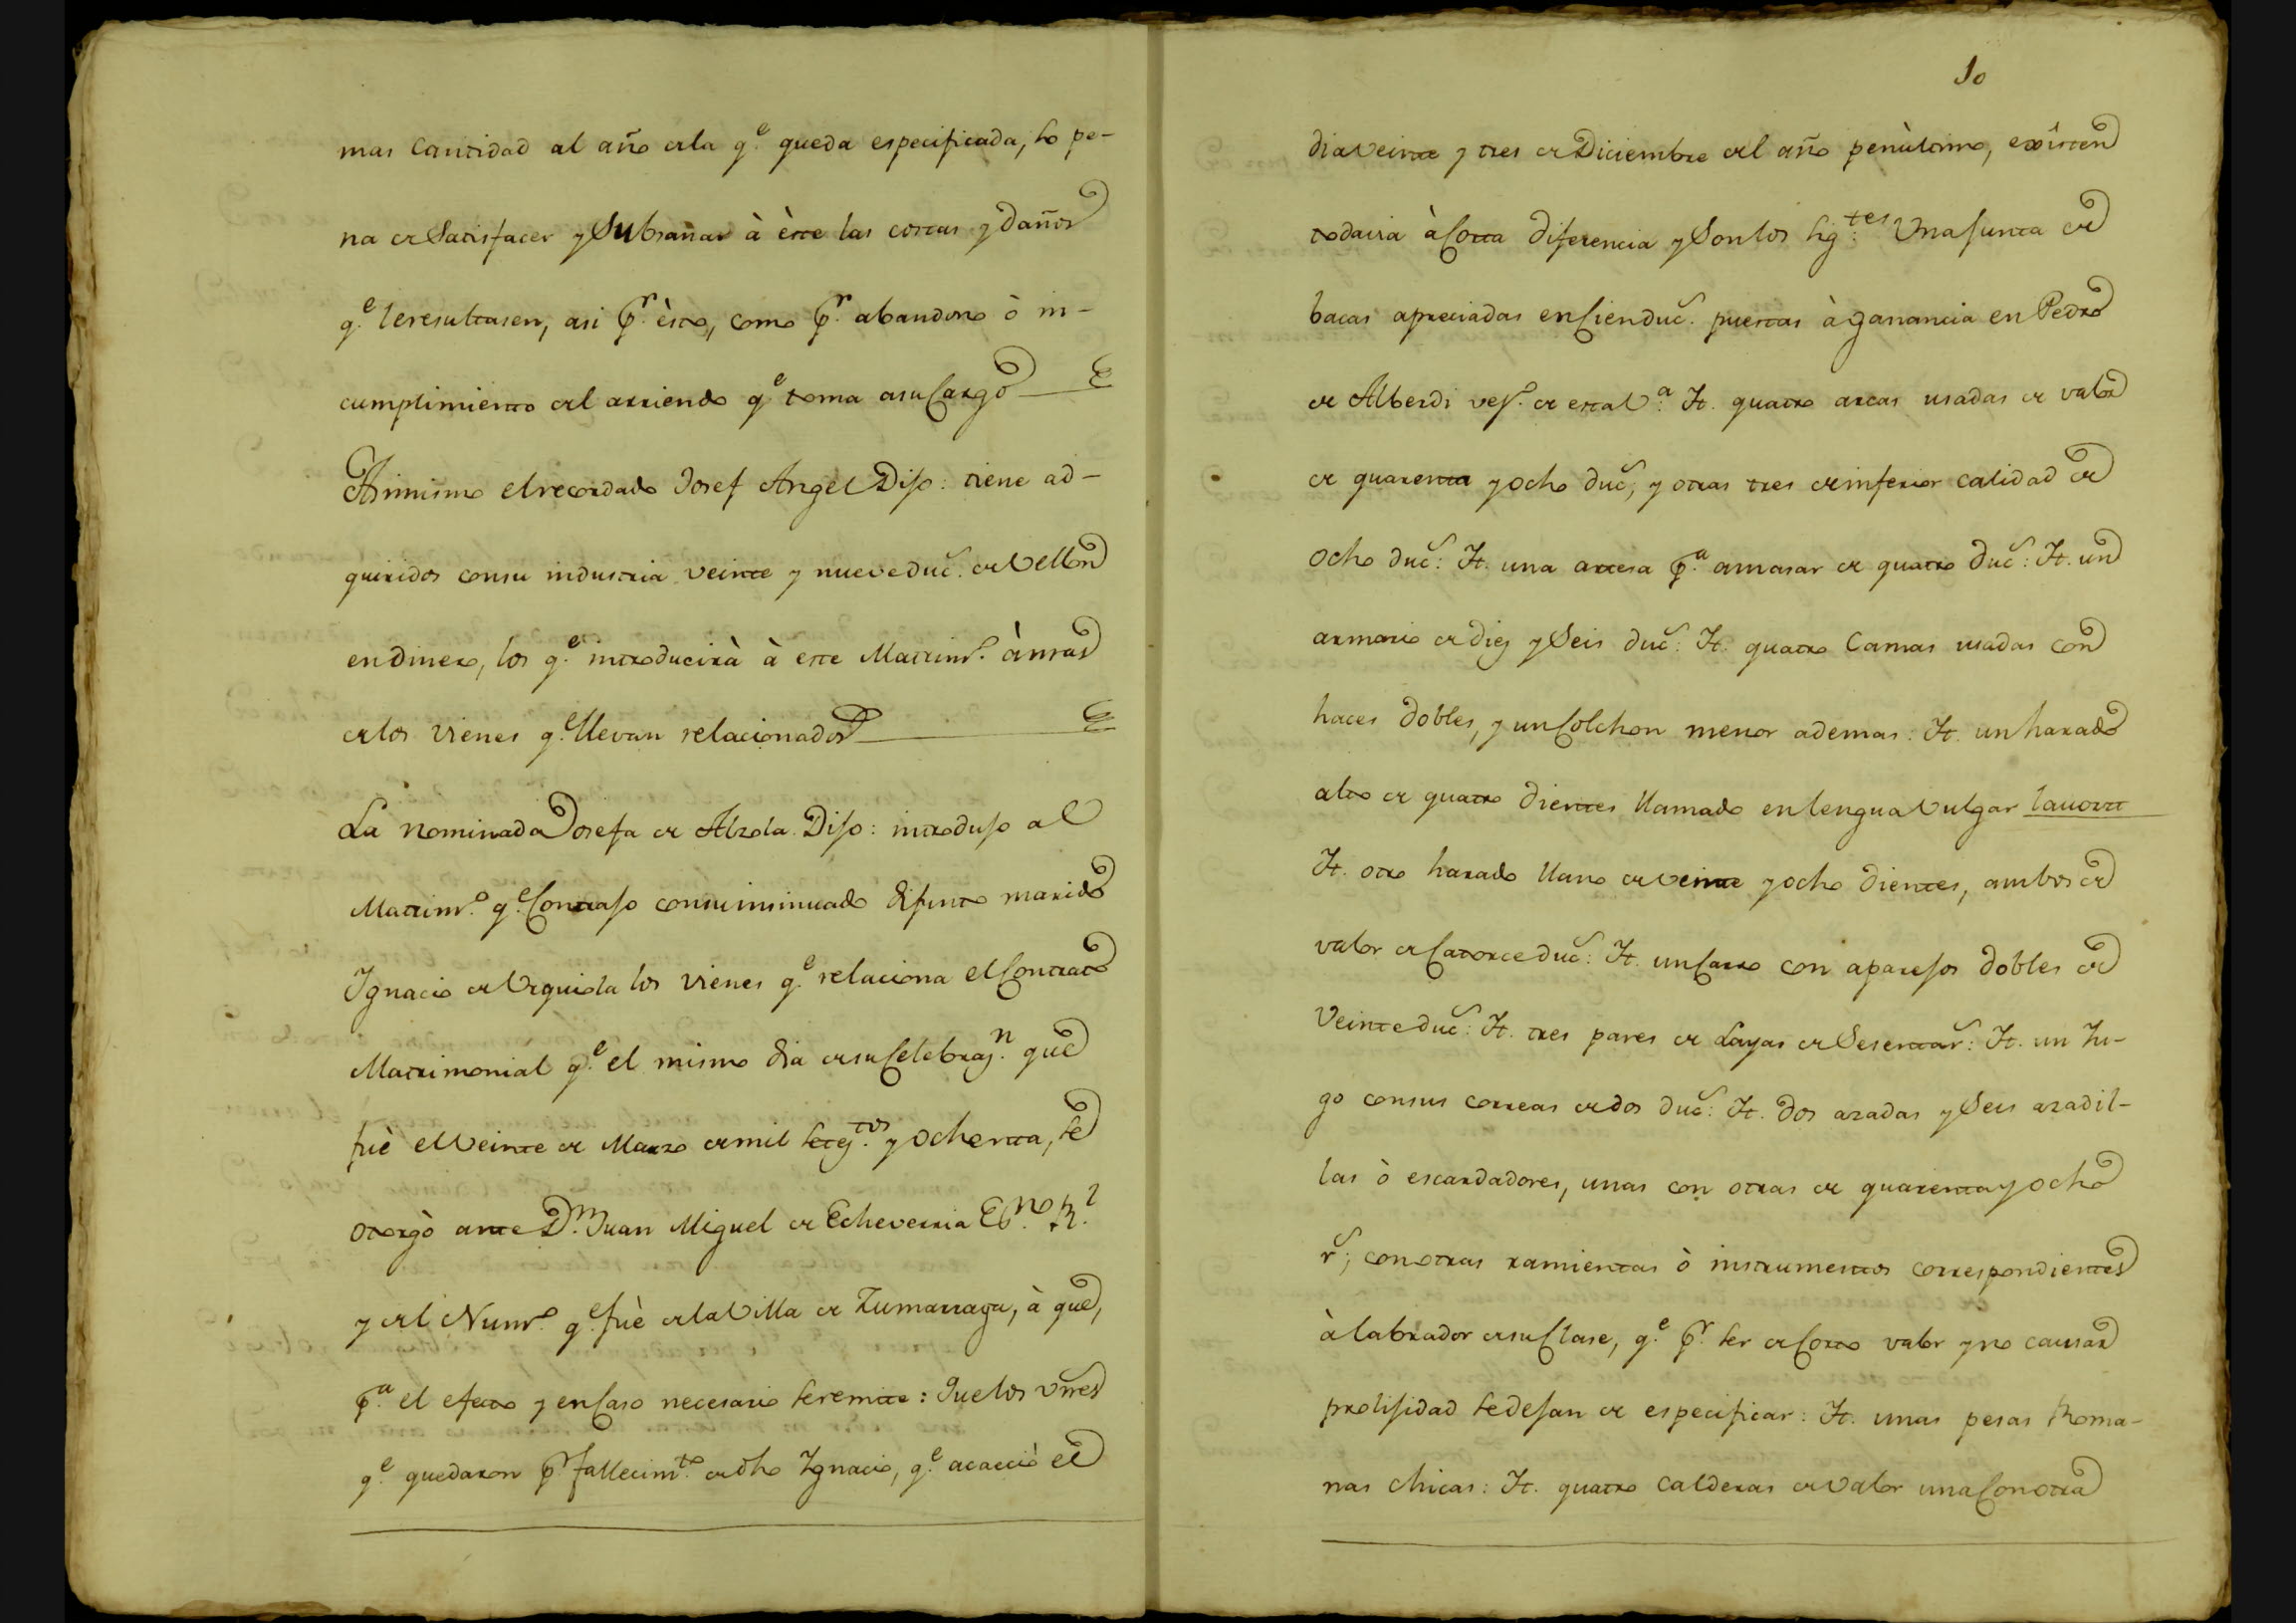 mas Cantidad al año de la q.e queda especificada, so pe-
na de Satisfacer y Subsanar à èste las costas y Daños
q.e le resultasen, asi p.r èsto, como p.r abandono ò in-
cumplimiento del arriendo q.e toma asu Cargo
Asimismo el recordado Josef Angel Dijo: tiene ad-
quiridos consu industria veinte y nueve duc.s de Vellon
en dinero, los q.e introducirà à este Matrim.o à mas
de los vienes q.e llevan relacionados
La nominada Josefa de Alzola Dijo: introdujo al
Matrim.o q.e Contrajo consu insinuado difunto marido
Ignacio de Urquiola los vienes q.e relaciona el Contrato
Matrimonial q.e el mismo dia de su Celebraz.n que
fuè el Veinte de Marzo de mil setez.tos y Ochenta, se
otorgò ante D.n Juan Miguel de Echeverria Es.no R.l
y del Num.o q.e fuè de la Villa de Zumarraga, à que,
p.a el efecto y en Caso necesario se remite: Que los vnes
q.e quedaron p.r fallecim.to de dho Ignacio, q.e acaeciò el
10
dia veinte y tres de Diciembre del año penùltimo, exîsten
todavia à Corta diferencia y Son los sig.tes Una Junta de
bacas apreciadas en Cien duc.s puestas à ganancia en Pedro
de Alberdi vez.o de esta V.a It. quatro arcas usadas de valor
de quarenta y ocho duc.s, y otras tres de inferior calidad de
Ocho duc.s: It. una artesa p.a amasar de quatro duc.s: It. un
armario de diez y Seis duc.s: It. quatro Camas usadas con
haces dobles, y un Colchon menor ademas: It. un harado
alto de quatro dientes llamado en lengua Vulgar lauortt
It. otro harado llano de veinte y ocho dientes, ambos de
valor de Catorce duc.s: It. un Carro con aparejos dobles de
Veinte duc.s: It. tres pares de Layas de Sesenta r.s: It. un Iu-
go consus correas de dos duc.s: It. Dos azadas y Seis azadil-
las ò escardadores, unas con otras de quarenta y ocho
r.s; con otras ramientas ò instrumentos correspondientes
à labrador de su Clase, q.e p.r ser de Corto valor y no causar
prolijidad se dejan de especificar: It. unas pesas Roma-
nas chicas: It. quatro Calderas de Valor una Con otra